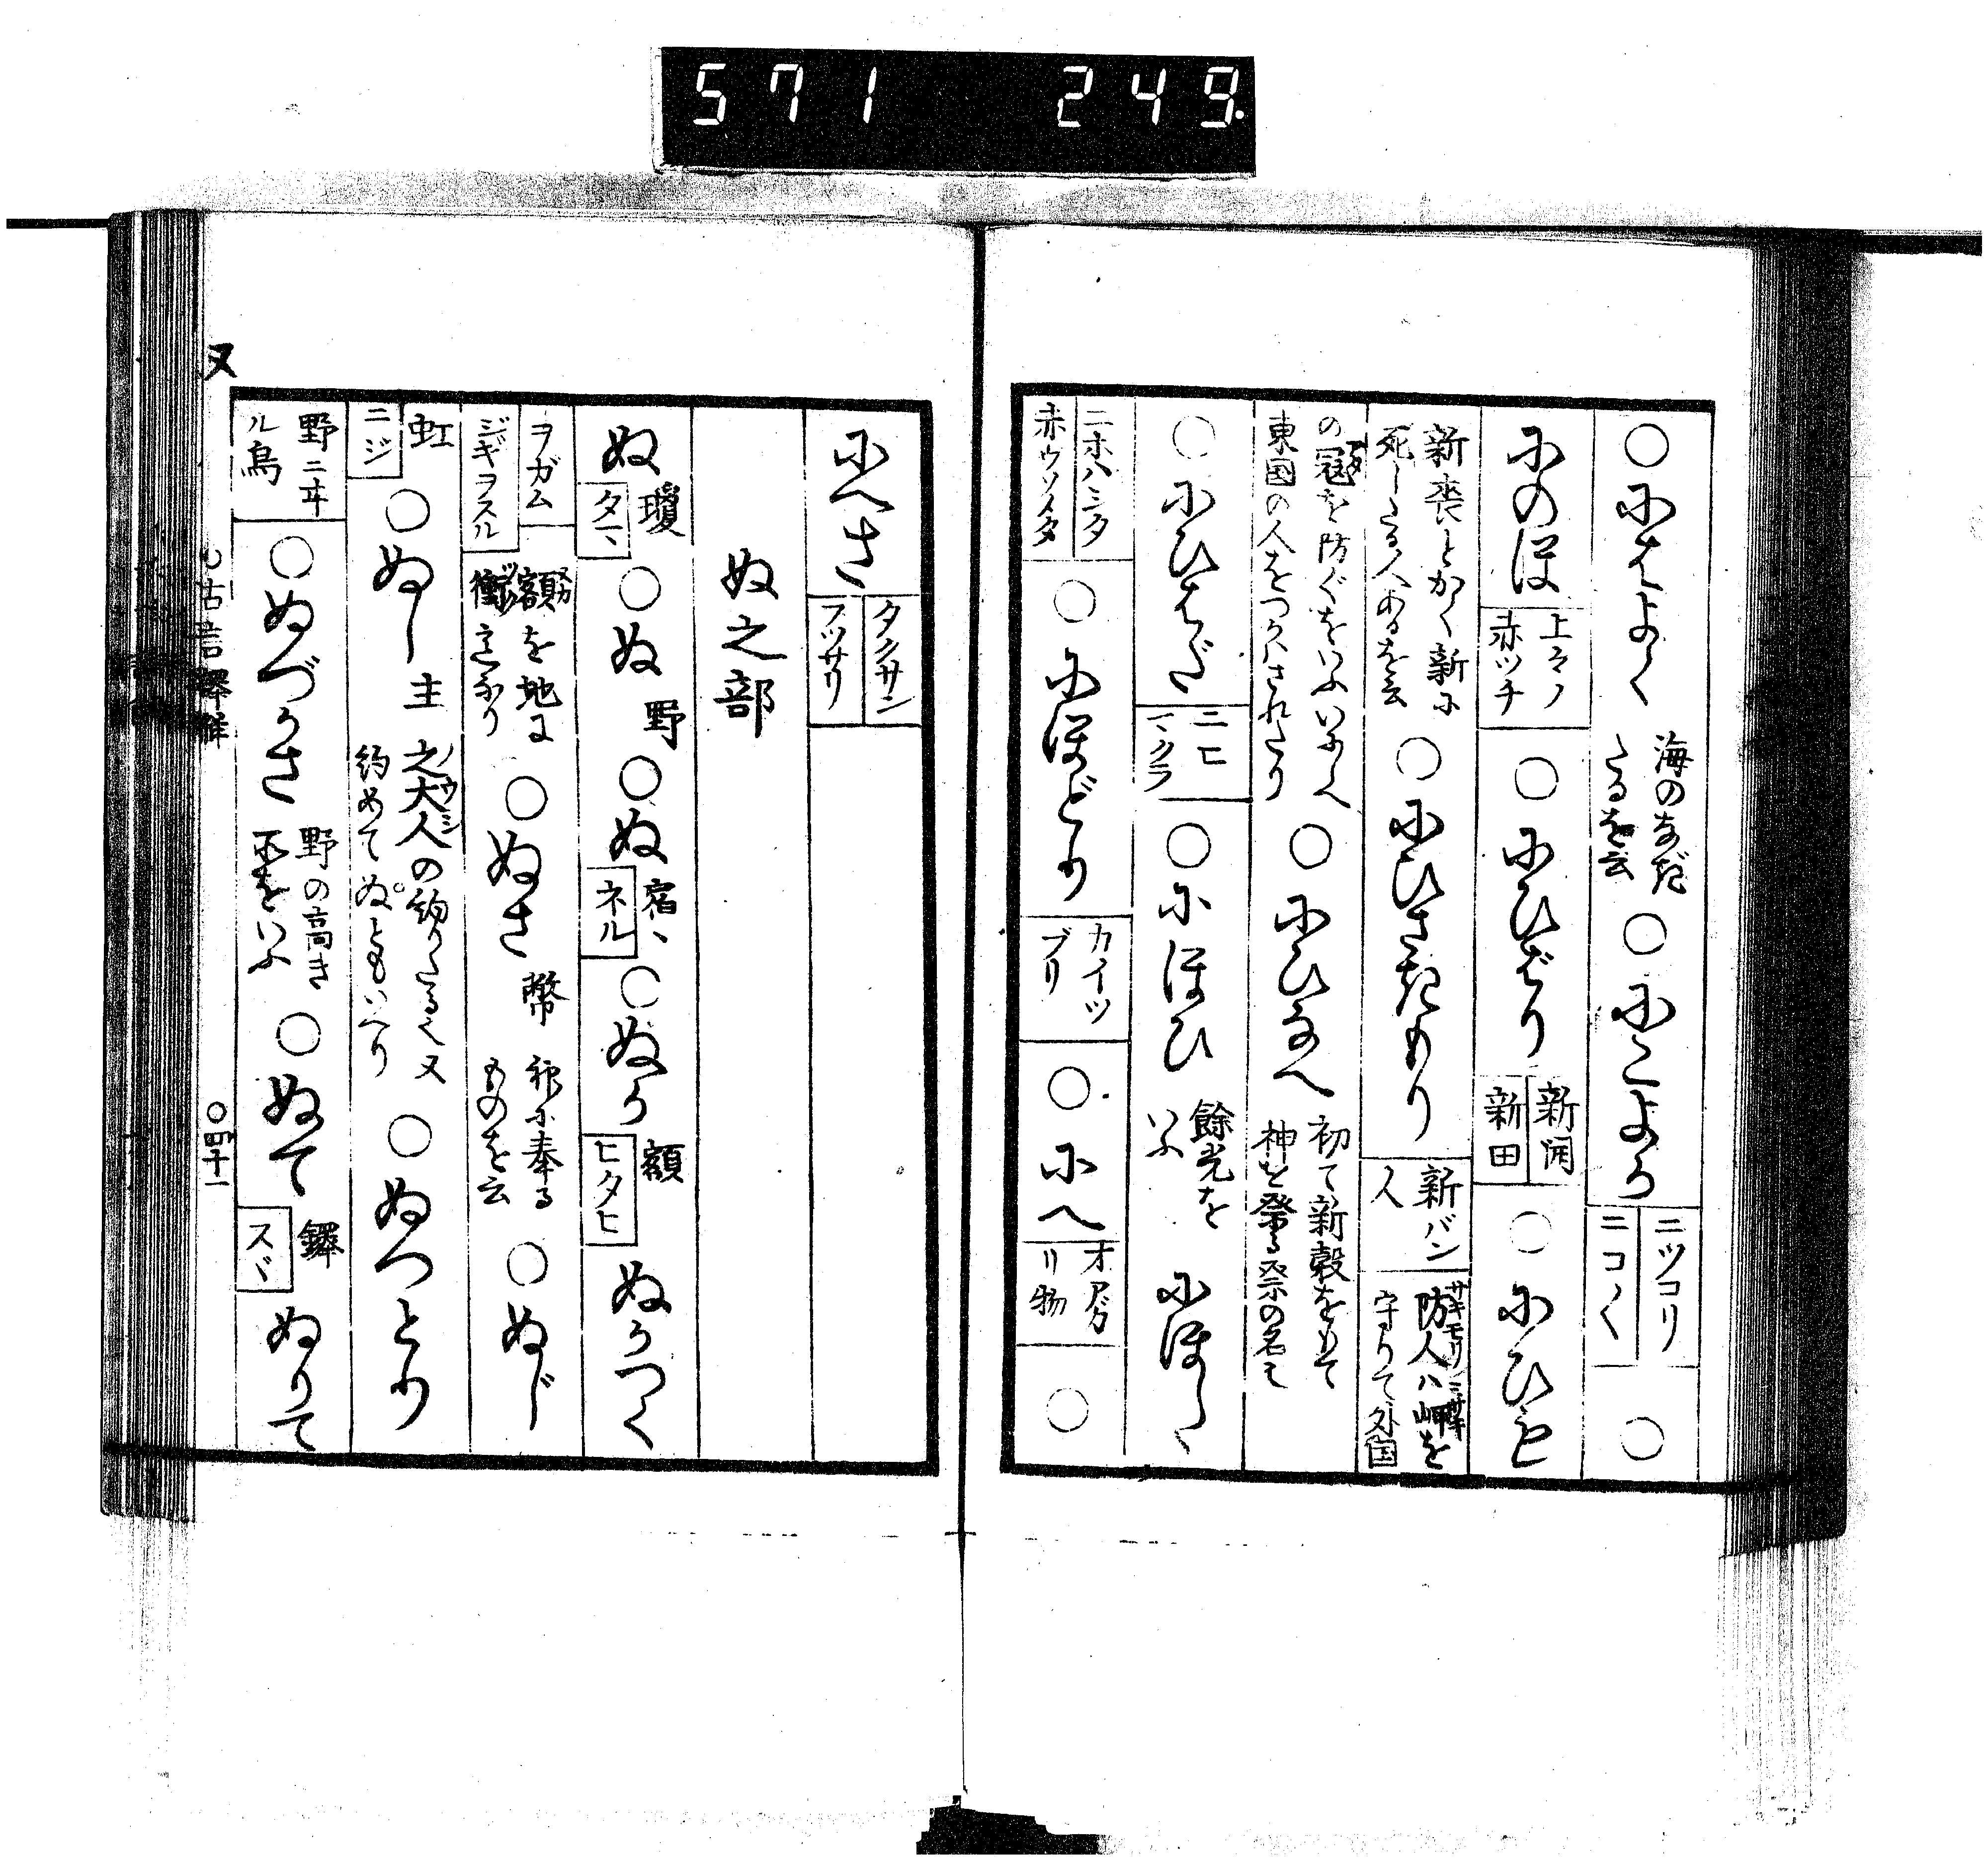 571 249.
○にはよく 海のなぎたるを云 ○にこよか ニツコリ ニコ〳〵 ○
にのほ 上々ノ赤ツチ ○にひばり 新開 新田 ○にひも
新喪とかく新に死したる人あるを云 ○にひさきもり 新バン人 防人ハ岬を守りて外国
の冦を防ぐをいふいにしへ東国の人をつかハされたり ○にひなへ 初て新穀をもて神を祭る祭の名也
○にひはだ ニヒマクラ ○にほひ 餘光をいふ にほしゝ
ニホハシタ 赤ウソメタ ○にほどり カイツブリ ○にへ オアガリ物 ○
にへさ タクサン フツサリ
ぬ之部
ぬ 瓊 タマ ○ぬ 野 ○ぬ 宿ヽ ネル ○ぬか 額 ヒタヒ ぬかつく
ヲガム ジギヲスル 額を地に衝也なり ○ぬさ 幣 神に奉るものを云 ○ぬじ
虹 ニジ ○ぬし 主 之大人の約りたる也又約めてぬともいへり ○ぬつとり
野ニヰル鳥 ○ぬづかさ 野の高き所をいふ ○ぬて 鐸 スヾ ぬりて
又
古言譯解
○四十一